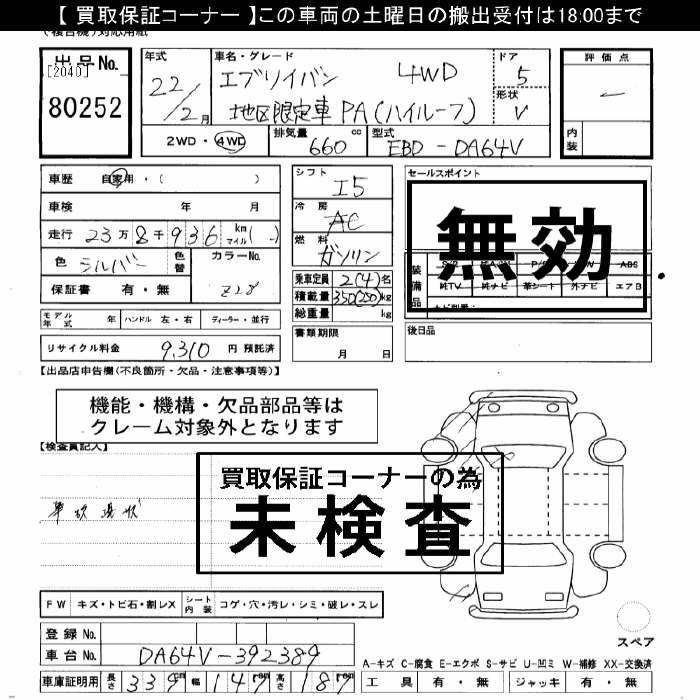 【 買取保証コーナー 】この車両の土曜日の搬出受付は18:00まで
出品No.
[2040]
80252
年式
22/2月
車名・グレード
エブリイバン 4WD
地区限定車 PA(ハイルーフ)
ドア
5
形状
V
評価点
内装
2WD・4WD
排気量
660 cc
型式
EBD-DA64V
車歴 自家用・( )
車検 年 月
走行 23万8千936 km マイル( )
色 シルバー 色替 カラーNo.
Z2S
保証書 有・無
シフト
I5
冷房
AC
燃料
ガソリン
乗車定員 2(4)名
積載量 350(250)kg
総重量 kg
セールスポイント
無効
装備品
ABS
純TV 純ナビ 革シート 外ナビ エアB
モデル年式 年 ハンドル 左・右 ディーラー・並行
リサイクル料金 9,310 円 預託済
書類期限
月 日
後日品
【出品店申告欄(不良箇所・欠品・注意事項等)】
機能・機構・欠品部品等は
クレーム対象外となります
【検査員記入】
買取保証コーナーの為
未検査
車歴現状
FW キズ・トビ石・割レX シート内装 コゲ・穴・汚レ・シミ・破レ・スレ
スペア
登録No.
車台No. DA64V-392389
A-キズ C-腐食 E-エクボ S-サビ U-凹ミ W-補修 XX-交換済
車庫証明用 長さ 339cm 幅 147cm 高さ 187cm
工具 有・無 ジャッキ 有・無